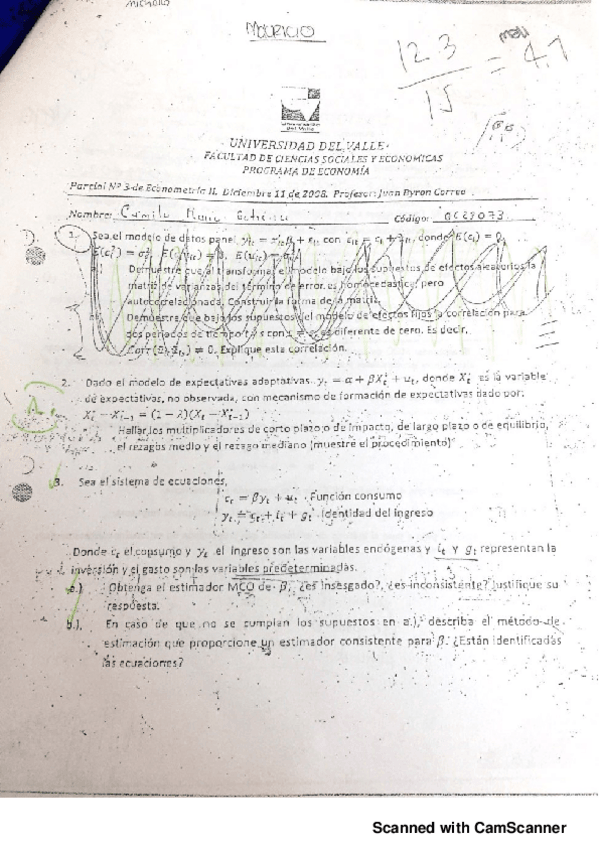 MAURICIO
12 3 / 15 = 4.1
Universidad
del Valle
UNIVERSIDAD DEL VALLE
FACULTAD DE CIENCIAS SOCIALES Y ECONOMICAS
PROGRAMA DE ECONOMÍA
Parcial Nº 3 de Econometría II. Diciembre 11 de 2008. Profesor: Juan Byron Correa
Nombre: Código:
1. Sea el modelo de datos panel, donde E(cᵢ) = 0,
Demuestre que al transformar el modelo bajo los supuestos de efectos aleatorios la
matriz de varianzas del término de error es homocedastica, pero
autocorrelacionada. Construir la forma de la matriz.
Demuestre que bajo los supuestos del modelo de efectos fijos la correlación para
dos periodos de tiempo t y s con es diferente de cero. Es decir,
≠ 0. Explique esta correlación.
2. Dado el modelo de expectativas adaptativas yₜ = α + βXₜ* + uₜ, donde Xₜ* es la variable
de expectativas, no observada, con mecanismo de formación de expectativas dado por:
Xₜ* − Xₜ₋₁* = (1 − λ)(Xₜ − Xₜ₋₁*)
Hallar los multiplicadores de corto plazo o de impacto, de largo plazo o de equilibrio,
el rezago medio y el rezago mediano (muestre el procedimiento)
3. Sea el sistema de ecuaciones,
cₜ = βyₜ + uₜ Función consumo
yₜ = cₜ + iₜ + gₜ Identidad del ingreso
Donde cₜ el consumo y yₜ el ingreso son las variables endógenas y iₜ y gₜ representan la
inversión y el gasto son las variables predeterminadas.
a.) Obtenga el estimador MCO de β, ¿es insesgado?, ¿es inconsistente? Justifique su
respuesta.
b.) En caso de que no se cumplan los supuestos en a.), describa el método de
estimación que proporcione un estimador consistente para β. ¿Están identificadas
las ecuaciones?
Scanned with CamScanner